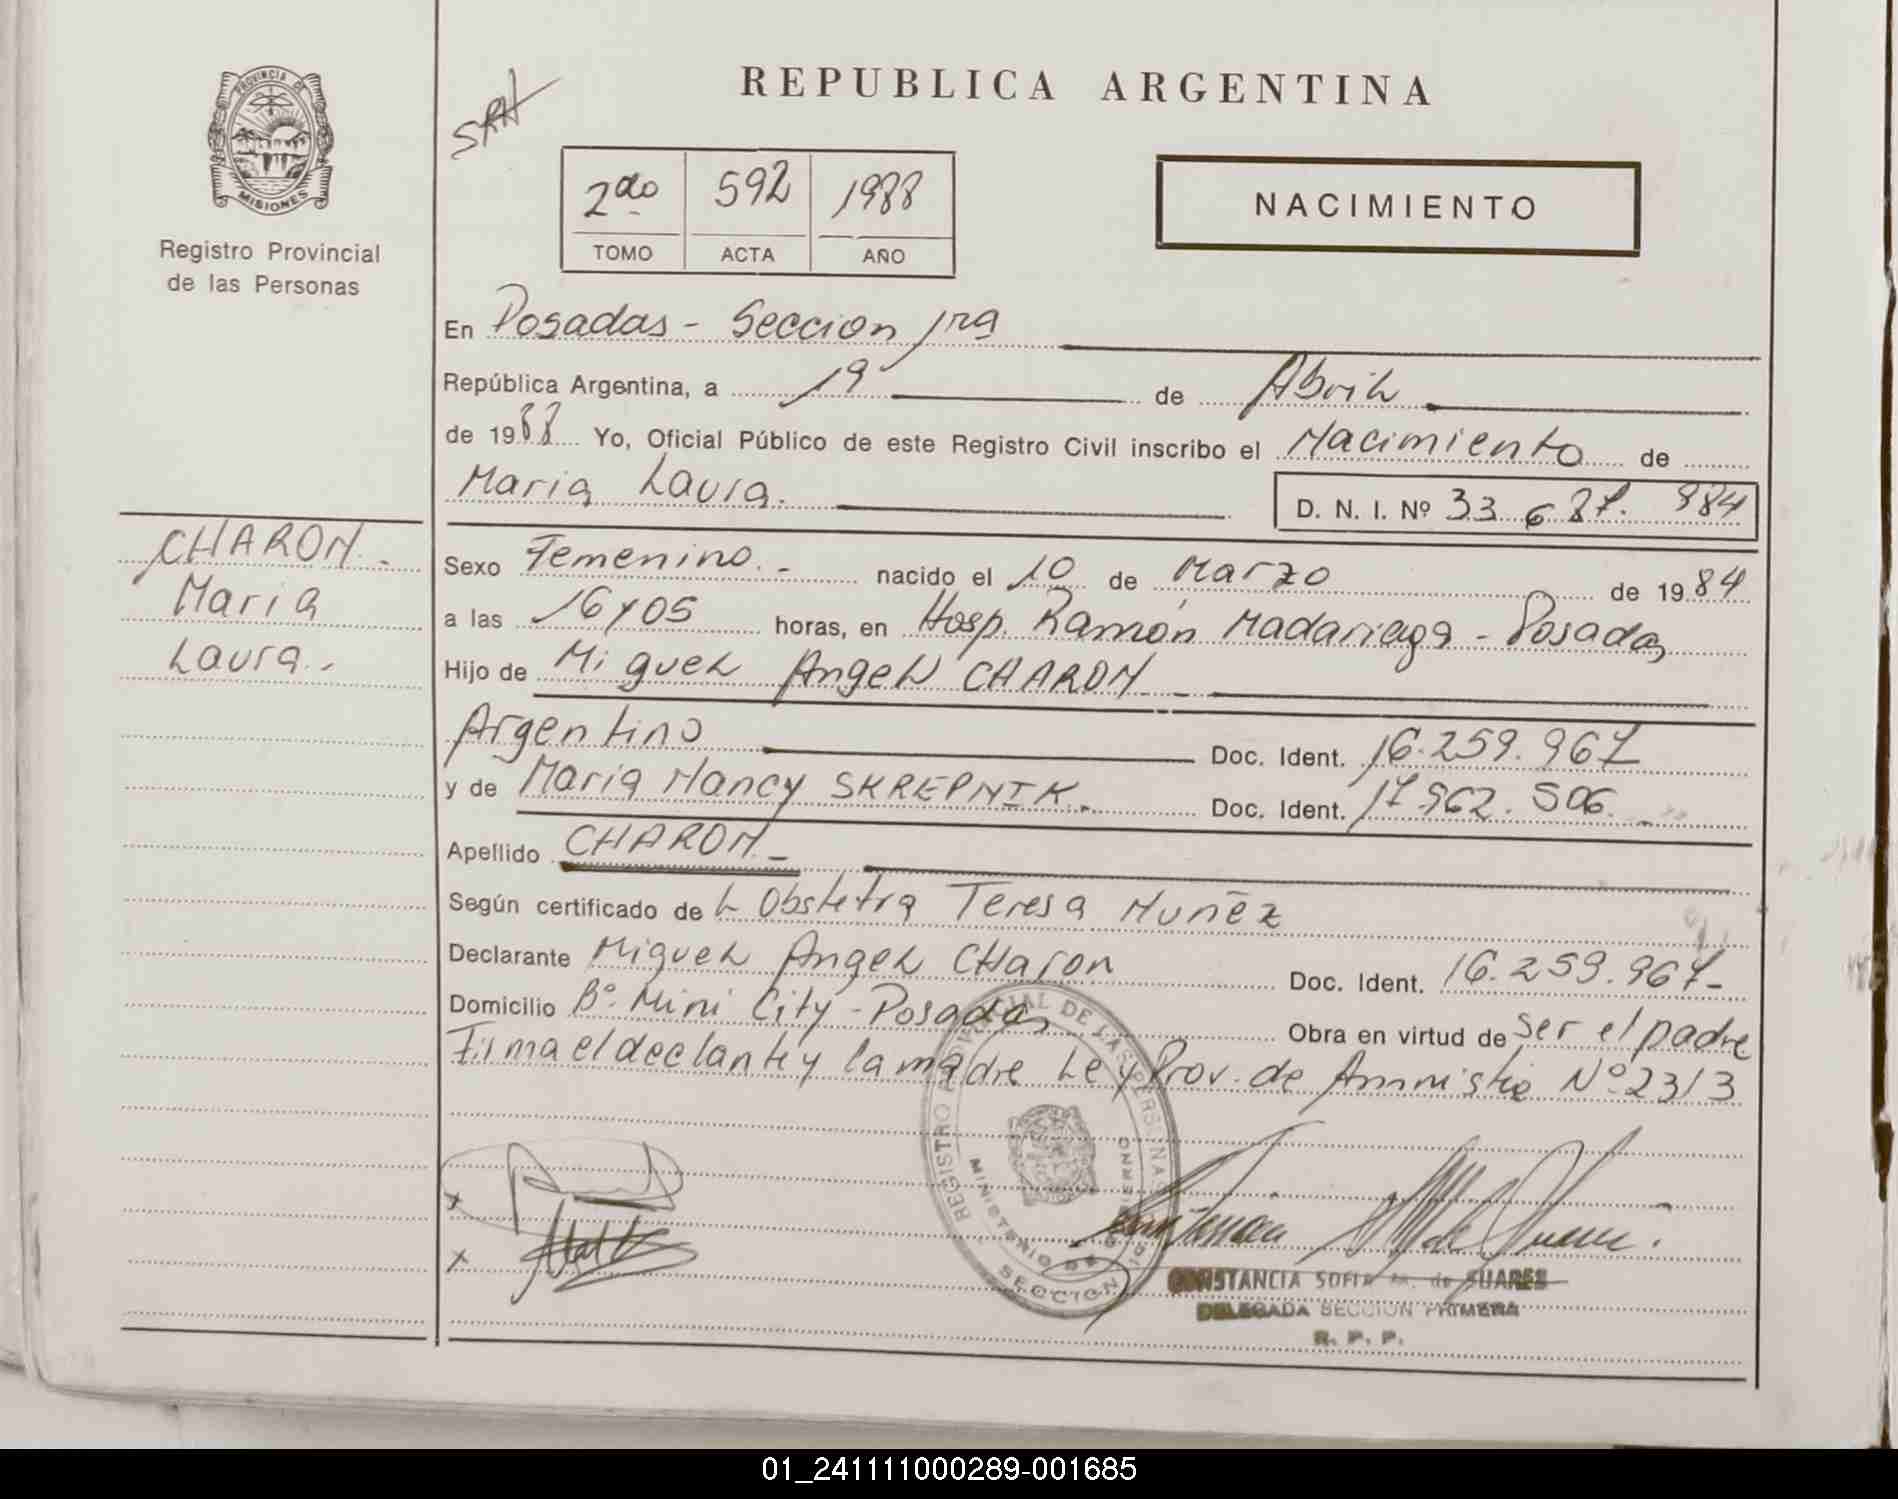 PROVINCIA DE
MISIONES
Registro Provincial
de las Personas
CHARON.-
Maria
Laura.-
REPUBLICA ARGENTINA
2do 592 1988
TOMO ACTA AÑO
NACIMIENTO
En Posadas - Seccion 1ra
República Argentina, a 19 de Abril
de 1988 Yo, Oficial Público de este Registro Civil inscribo el Nacimiento de
Maria Laura.
D. N. I. Nº 33 687. 984
Sexo Femenino.- nacido el 10 de Marzo de 1984
a las 16 y 05 horas, en Hosp. Ramón Madariaga - Posadas
Hijo de Miguel Angel CHARON.-
Argentino Doc. Ident. 16.259.967
y de Maria Nancy SKREPNIK.- Doc. Ident. 17.962.506.-
Apellido CHARON.-
Según certificado de L Obstetra Teresa Muñez
Declarante Miguel Angel CHaron Doc. Ident. 16.259.967-
Domicilio Bº. Mini City - Posadas Obra en virtud de ser el padre
Firma el declante y la madre Ley Prov. de Amnistia Nº 2313
REGISTRO PROVINCIAL DE LAS PERSONAS
MINISTERIO DE GOBIERNO
SECCION 1
CONSTANCIA SOFIA de SUARES
DELEGADA SECCION PRIMERA
R. P. P.
01_241111000289-001685